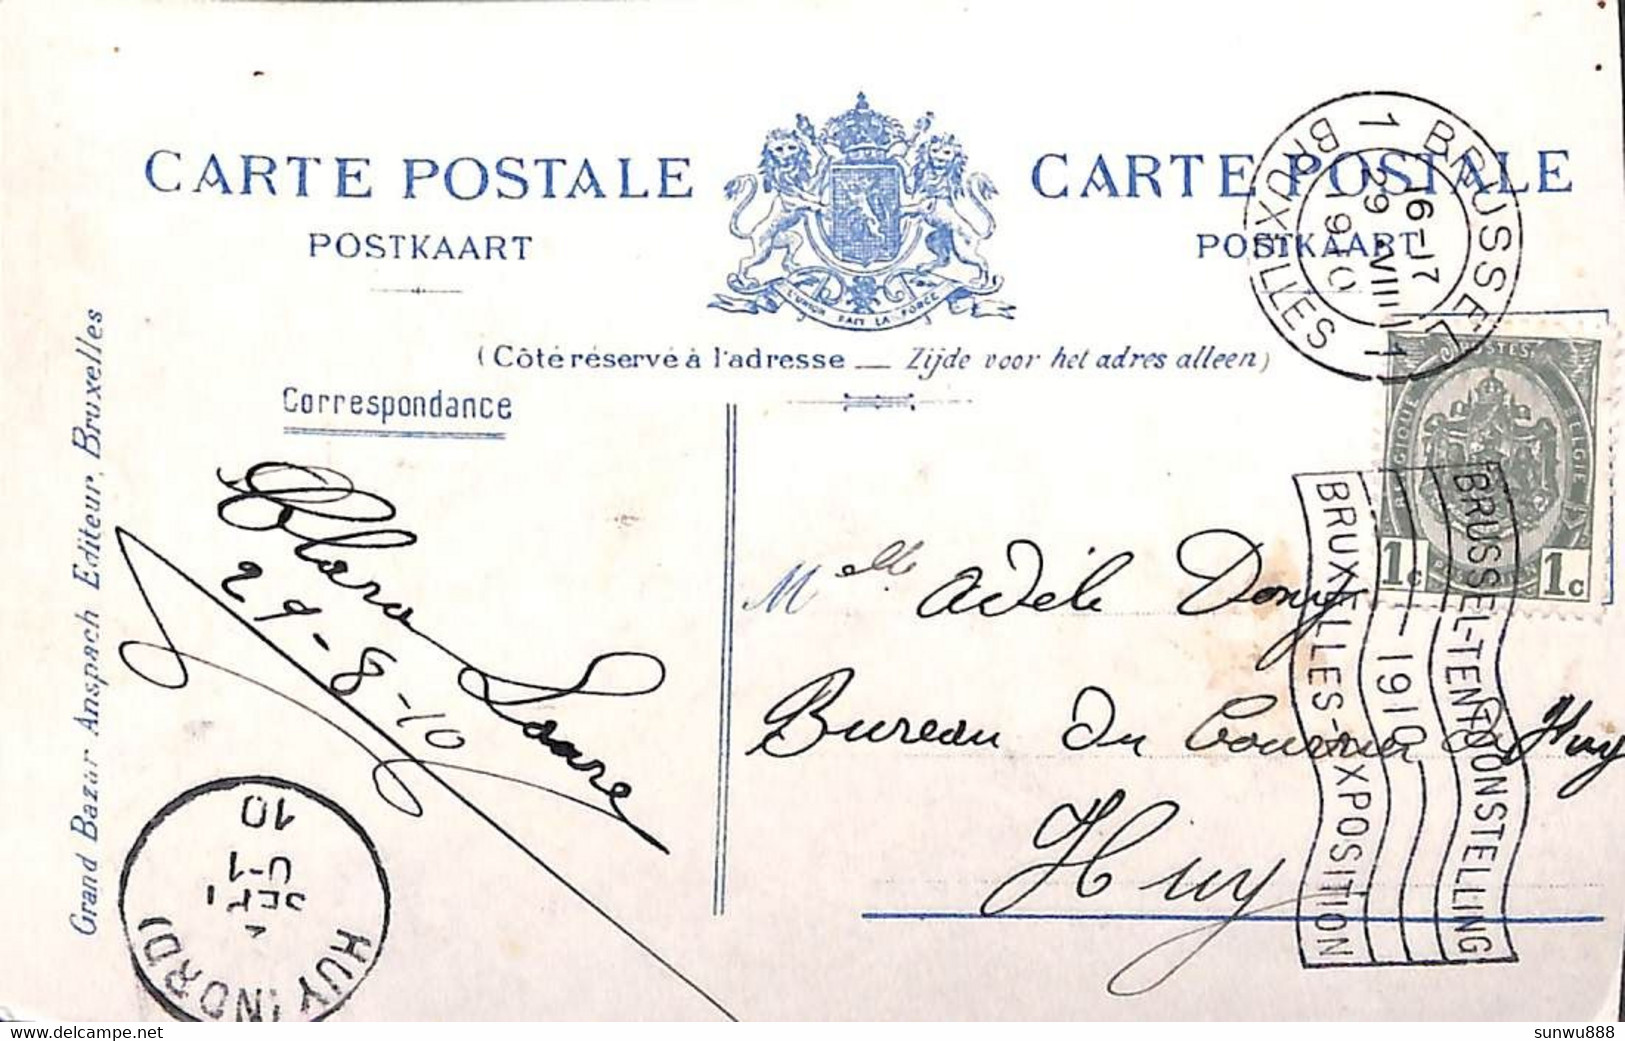 CARTE POSTALE
POSTKAART
CARTE POSTALE
POSTKAART
L'UNION FAIT LA FORCE
(Côté réservé à l'adresse — Zijde voor het adres alleen)
Correspondance
Grand Bazar Anspach Editeur, Bruxelles
1 BRUSSEL 1
BRUXELLES
16-17
29 VIII
1910
POSTES
BELGIQUE
BELGIE
POSTERIJEN
1c
1c
BRUSSEL-TENTOONSTELLING
1910
BRUXELLES-EXPOSITION
Clara
29-8-10
Melle Adèle Dony
Bureau du Courrier de Huy
Huy
HUY (NORD)
SEPT
10
sunwu888